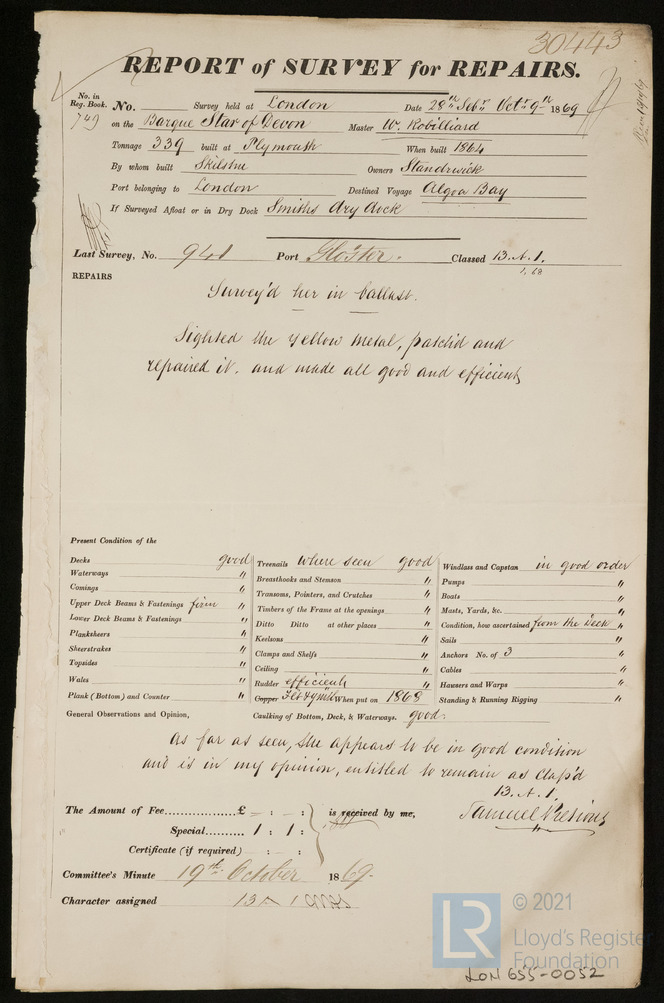 30443
REPORT of SURVEY for REPAIRS.
No. in Reg. Book. No. Survey held at London Date 28th Sepr Octr 9th 1869
749 on the Barque Star of Devon Master W. Robilliard
Tonnage 339 built at Plymouth When built 1864
By whom built Owners Standwick
Port belonging to London Destined Voyage Algoa Bay
If Surveyed Afloat or in Dry Dock Smiths dry dock
Last Survey, No. 941 Port Gloster. Classed 13.A.1.
1,68
REPAIRS
Survey'd her in ballast.
Sighted the yellow metal, patch'd and
repaired it. and made all good and efficient
Present Condition of the
Decks good
Waterways "
Comings "
Upper Deck Beams & Fastenings firm "
Lower Deck Beams & Fastenings "
Planksheers "
Sheerstrakes "
Topsides "
Wales "
Plank (Bottom) and Counter "
Treenails where seen good
Breasthooks and Stemson "
Transoms, Pointers, and Crutches "
Timbers of the Frame at the openings "
Ditto Ditto at other places "
Keelsons "
Clamps and Shelfs "
Ceiling "
Rudder efficient "
Copper When put on 1868
Windlass and Capstan in good order
Pumps "
Boats "
Masts, Yards, &c. "
Condition, how ascertained from the Deck "
Sails "
Anchors No. of 3 "
Cables "
Hawsers and Warps "
Standing & Running Rigging "
General Observations and Opinion, Caulking of Bottom, Deck, & Waterways. good.
As far as seen, she appears to be in good condition
and is in my opinion, entitled to remain as class'd
13.A.1.
The Amount of Fee................£ - : - : is received by me,
Special......... 1 : 1 :
Certificate (if required) - : - :
Samuel
Committee's Minute 19th October 1869.
Character assigned 13 A 1
LR © 2021
Lloyd's Register
Foundation
LON 655-0052